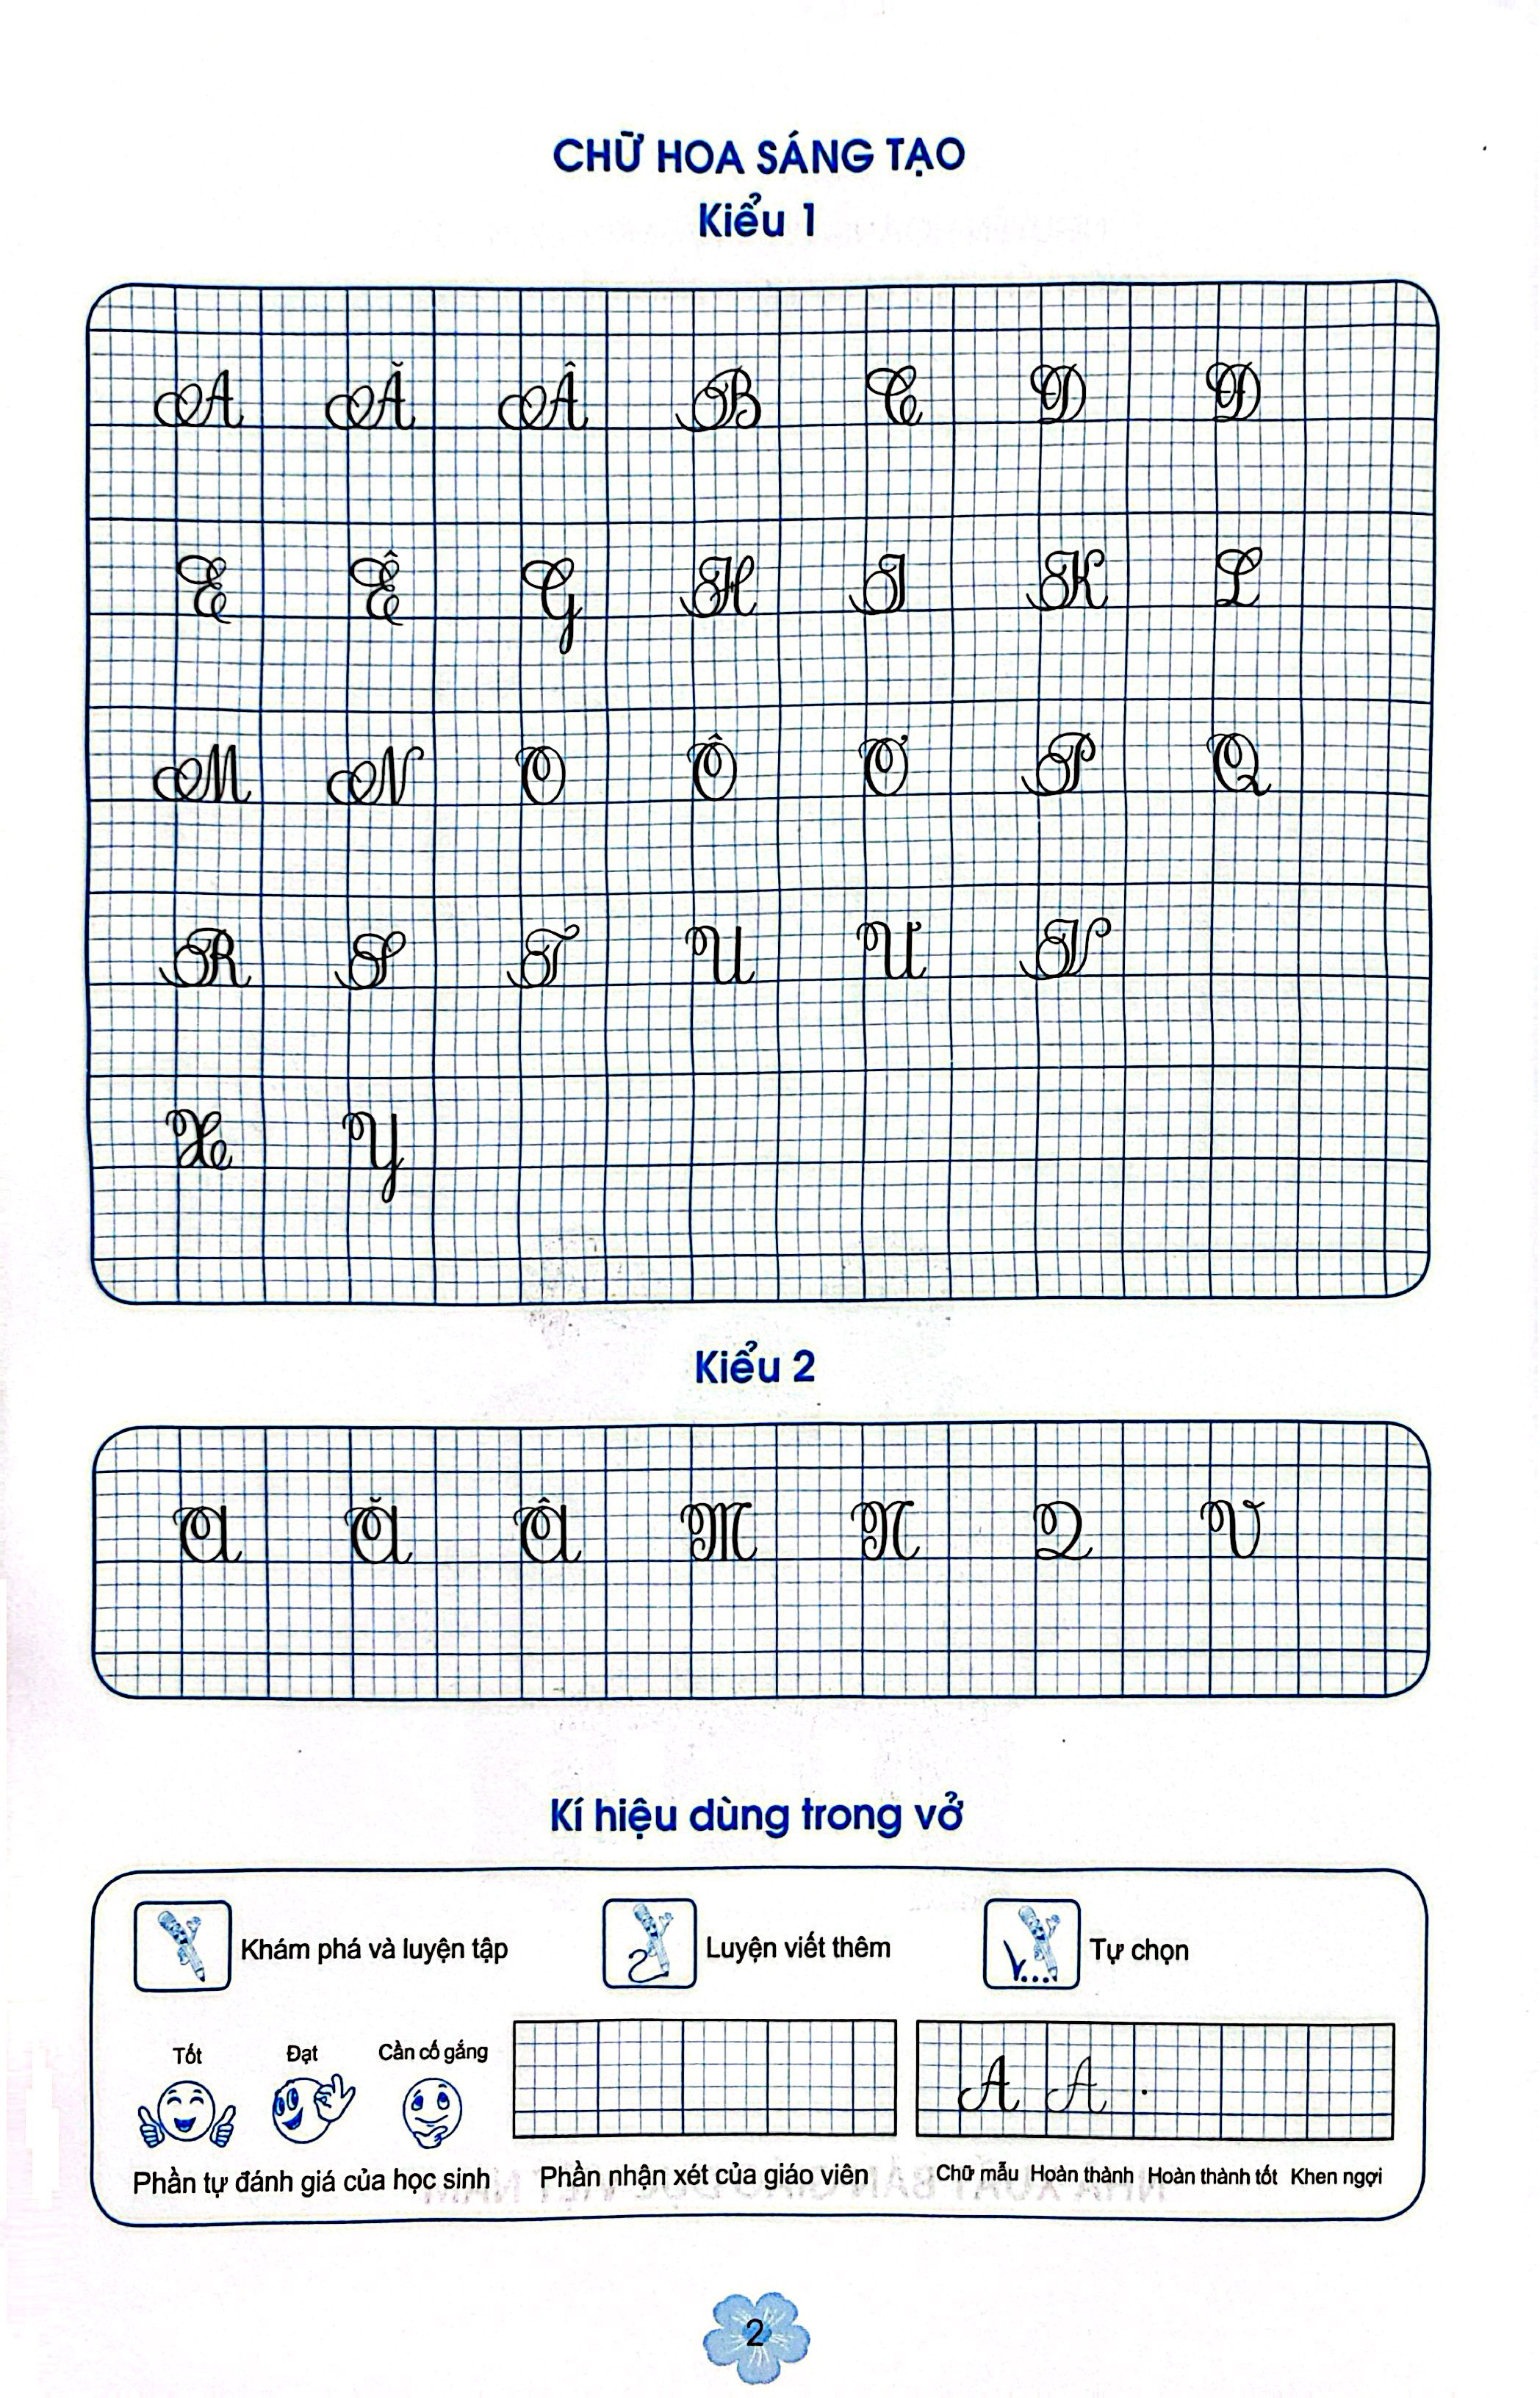 CHỮ HOA SÁNG TẠO
Kiểu 1
A Ă Â B C D Đ
E Ê G H I K L
M N O Ô Ơ P Q
R S T U Ư V
X Y
Kiểu 2
A Ă Â M N Q V
Kí hiệu dùng trong vở
Khám phá và luyện tập Luyện viết thêm Tự chọn
Tốt Đạt Cần cố gắng
A A .
Phần tự đánh giá của học sinh Phần nhận xét của giáo viên Chữ mẫu Hoàn thành Hoàn thành tốt Khen ngợi
2